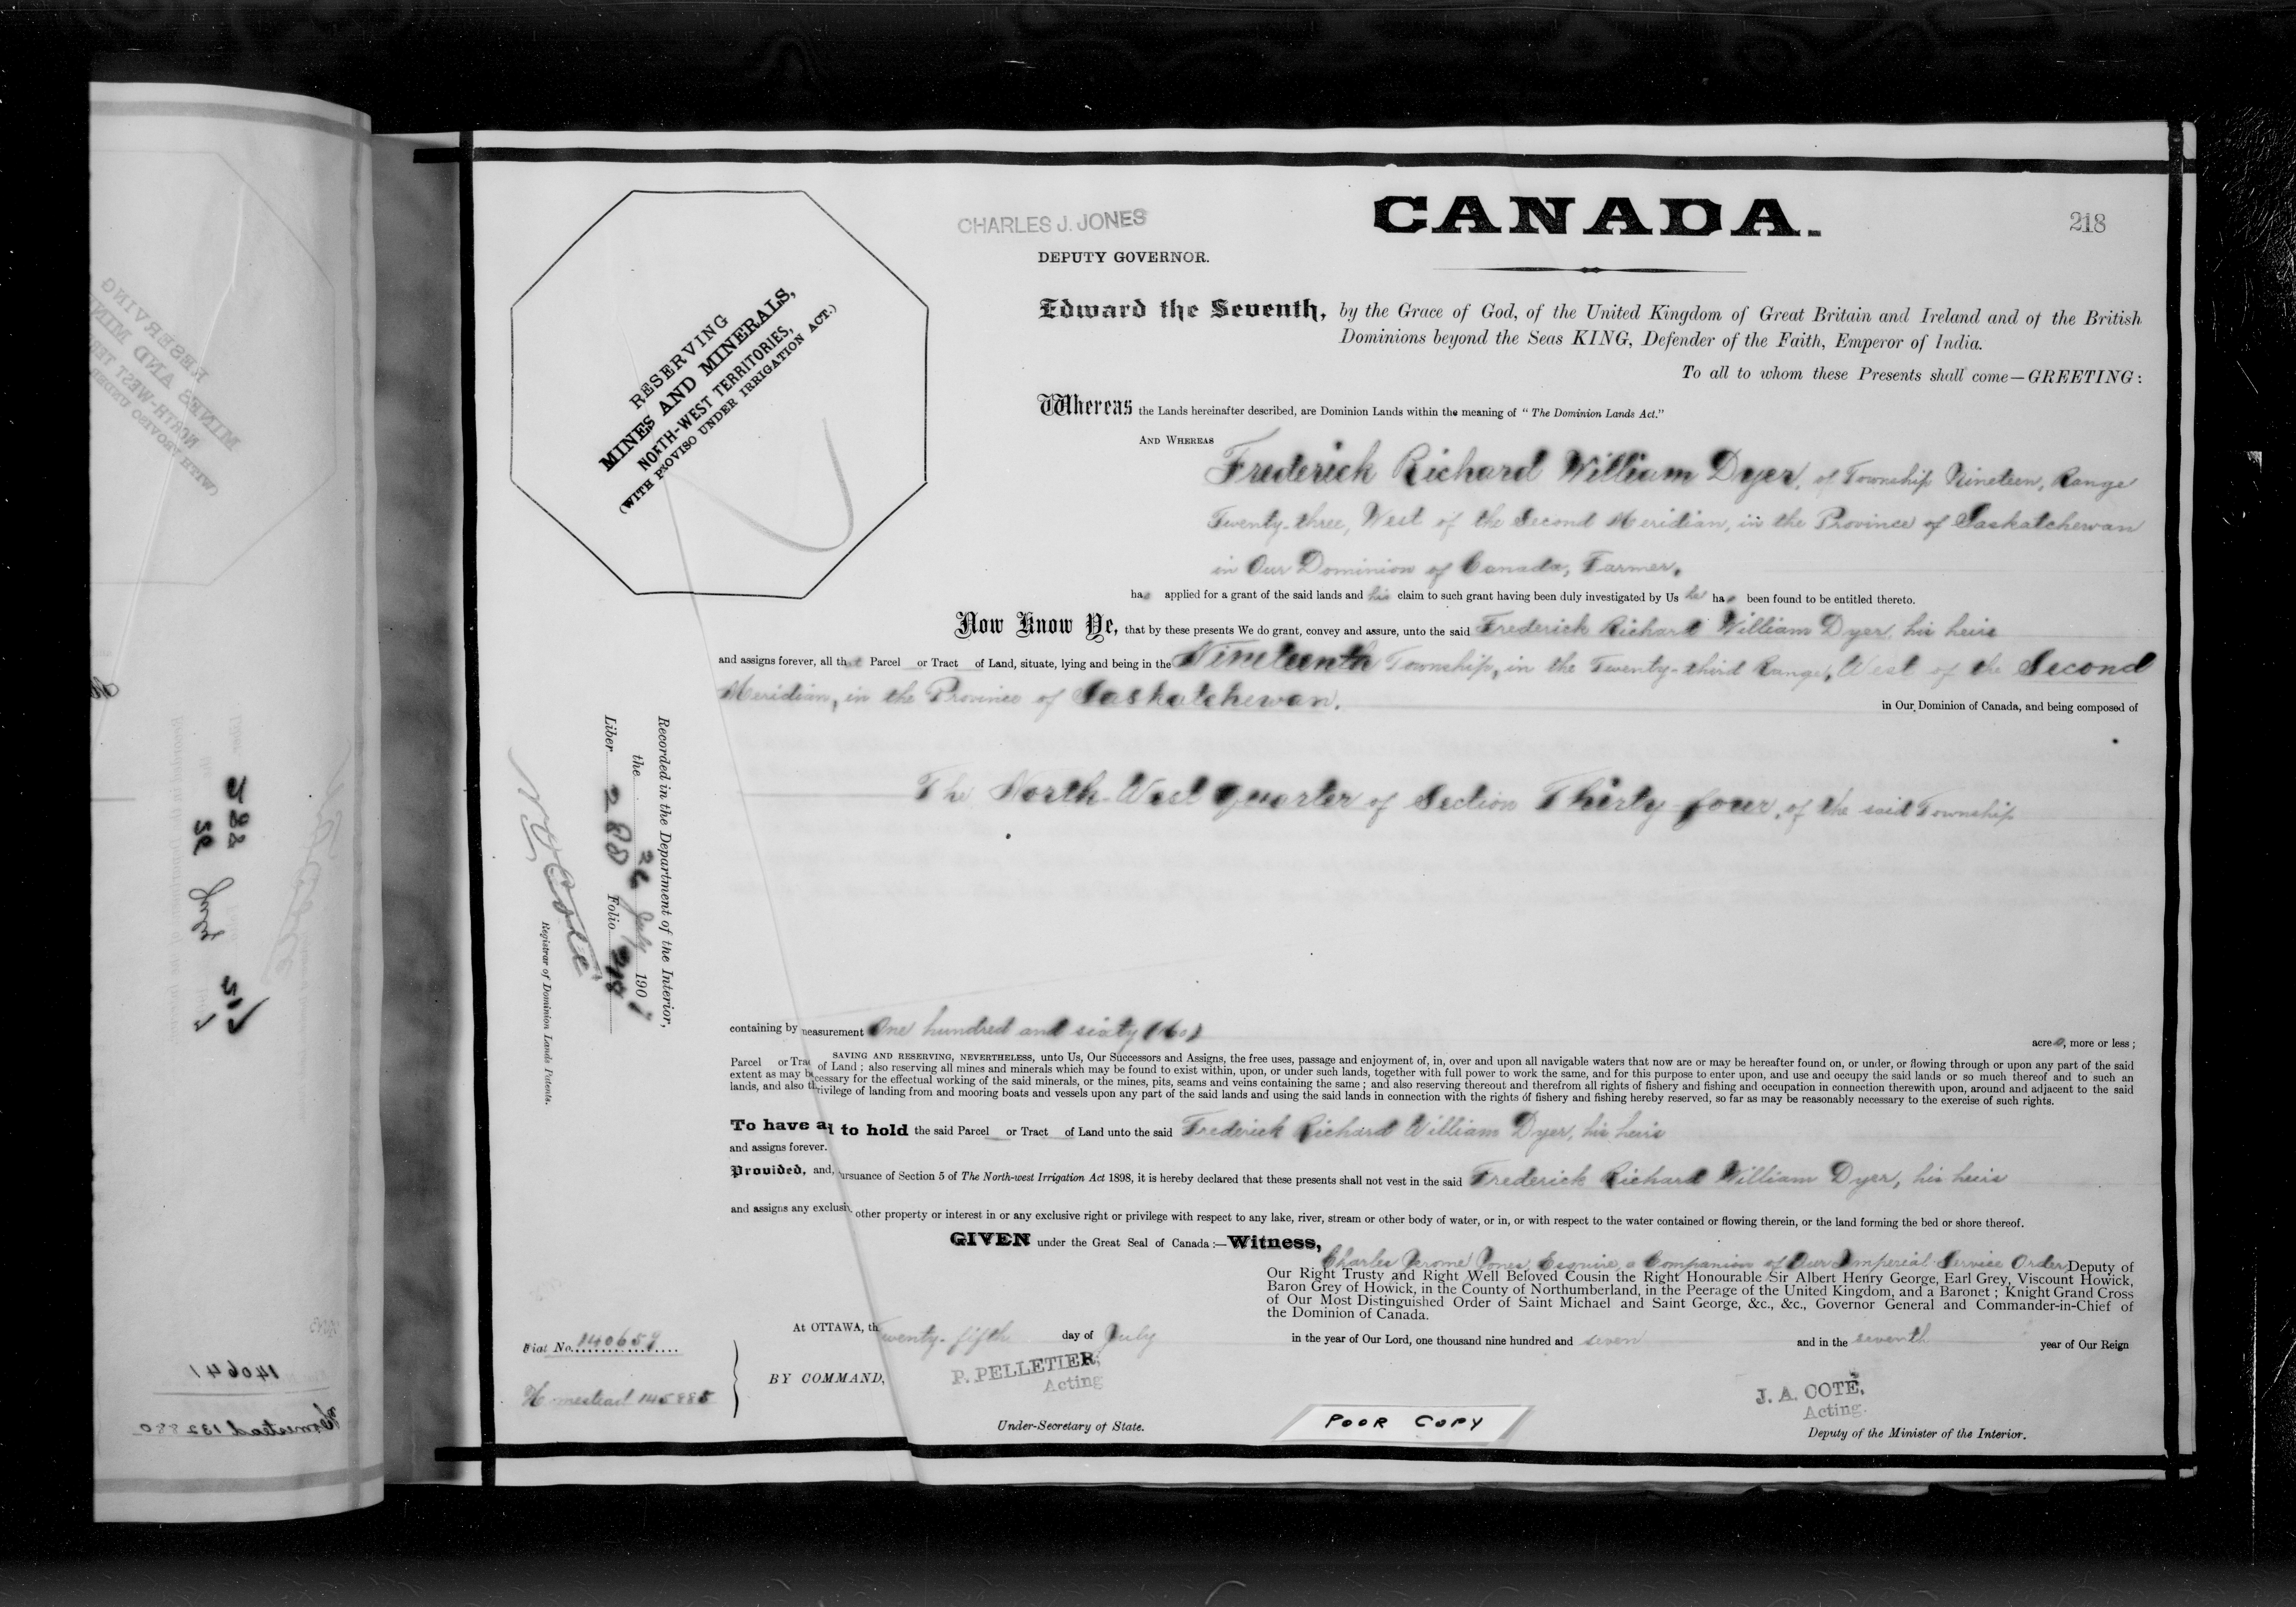 CHARLES J. JONES
DEPUTY GOVERNOR.
CANADA.
218
RESERVING
MINES AND MINERALS,
NORTH-WEST TERRITORIES,
(WITH PROVISO UNDER IRRIGATION ACT.)
Edward the Seventh, by the Grace of God, of the United Kingdom of Great Britain and Ireland and of the British
Dominions beyond the Seas KING, Defender of the Faith, Emperor of India.
To all to whom these Presents shall come—GREETING:
Whereas the Lands hereinafter described, are Dominion Lands within the meaning of "The Dominion Lands Act."
AND WHEREAS
Frederick Richard William Dyer, of Township Nineteen, Range
Twenty-three, West of the Second Meridian, in the Province of Saskatchewan
in Our Dominion of Canada, Farmer,
has applied for a grant of the said lands and his claim to such grant having been duly investigated by Us he has been found to be entitled thereto.
Now Know Ye, that by these presents We do grant, convey and assure, unto the said Frederick Richard William Dyer, his heirs
and assigns forever, all that Parcel or Tract of Land, situate, lying and being in the Nineteenth Township, in the Twenty-third Range, West of the Second
Meridian, in the Province of Saskatchewan.
in Our Dominion of Canada, and being composed of
The North-West quarter of Section Thirty-four, of the said Township
Recorded in the Department of the Interior,
the 26 July 1907
Liber 280 Folio 218
Registrar of Dominion Lands Patents.
containing by measurement One hundred and sixty (160) acres, more or less;
SAVING AND RESERVING, NEVERTHELESS, unto Us, Our Successors and Assigns, the free uses, passage and enjoyment of, in, over and upon all navigable waters that now are or may be hereafter found on, or under, or flowing through or upon any part of the said
Parcel or Trac of Land; also reserving all mines and minerals which may be found to exist within, upon, or under such lands, together with full power to work the same, and for this purpose to enter upon, and use and occupy the said lands or so much thereof and to such an
extent as may be necessary for the effectual working of the said minerals, or the mines, pits, seams and veins containing the same; and also reserving thereout and therefrom all rights of fishery and fishing and occupation in connection therewith upon, around and adjacent to the said
lands, and also th rivilege of landing from and mooring boats and vessels upon any part of the said lands and using the said lands in connection with the rights of fishery and fishing hereby reserved, so far as may be reasonably necessary to the exercise of such rights.
To have a to hold the said Parcel or Tract of Land unto the said Frederick Richard William Dyer, his heirs
and assigns forever.
Provided, and, ursuance of Section 5 of The North-west Irrigation Act 1898, it is hereby declared that these presents shall not vest in the said Frederick Richard William Dyer, his heirs
and assigns any exclusiv other property or interest in or any exclusive right or privilege with respect to any lake, river, stream or other body of water, or in, or with respect to the water contained or flowing therein, or the land forming the bed or shore thereof.
GIVEN under the Great Seal of Canada:—Witness,
Charles Jerome Jones, Esquire, a Companion of Our Imperial Service Order Deputy of
Our Right Trusty and Right Well Beloved Cousin the Right Honourable Sir Albert Henry George, Earl Grey, Viscount Howick,
Baron Grey of Howick, in the County of Northumberland, in the Peerage of the United Kingdom, and a Baronet; Knight Grand Cross
of Our Most Distinguished Order of Saint Michael and Saint George, &c., &c., Governor General and Commander-in-Chief of
the Dominion of Canada.
At OTTAWA, th Twenty-fifth day of July in the year of Our Lord, one thousand nine hundred and seven and in the seventh year of Our Reign
Fiat No. 140659
Homestead 145885
BY COMMAND,
P. PELLETIER,
Acting
Under-Secretary of State.
POOR COPY
J. A. COTÉ,
Acting.
Deputy of the Minister of the Interior.
140641